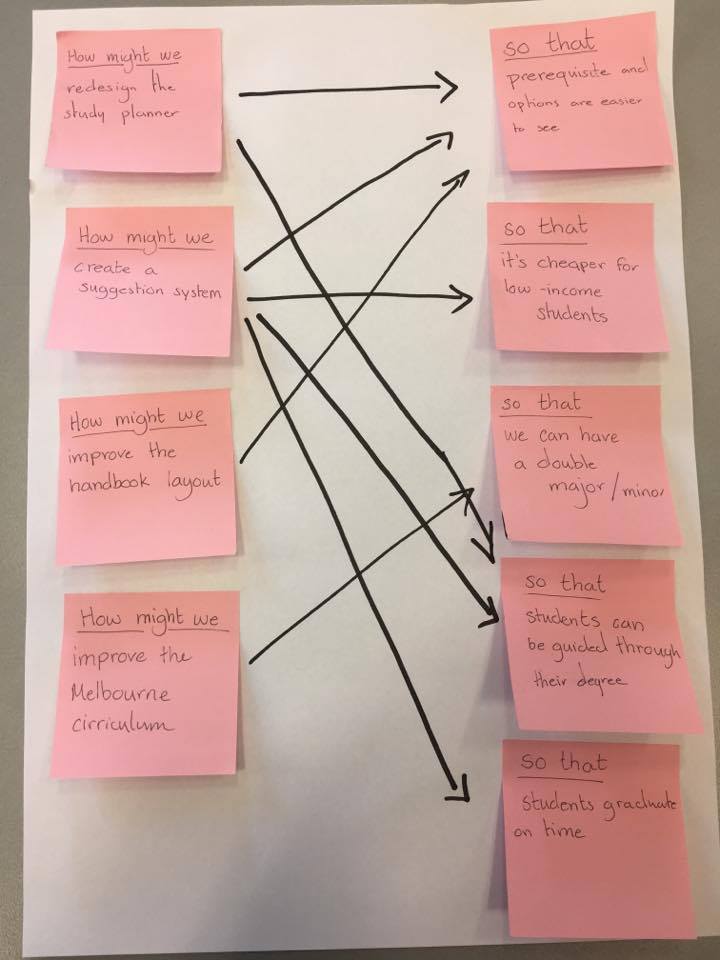 How might we
redesign the
study planner
How might we
create a
suggestion system
How might we
improve the
handbook layout
How might we
improve the
Melbourne
cirriculum
so that
prerequisite and
options are easier
to see
so that
it's cheaper for
low-income
students
so that
we can have
a double
major/minor
so that
students can
be guided through
their degree
so that
students graduate
on time